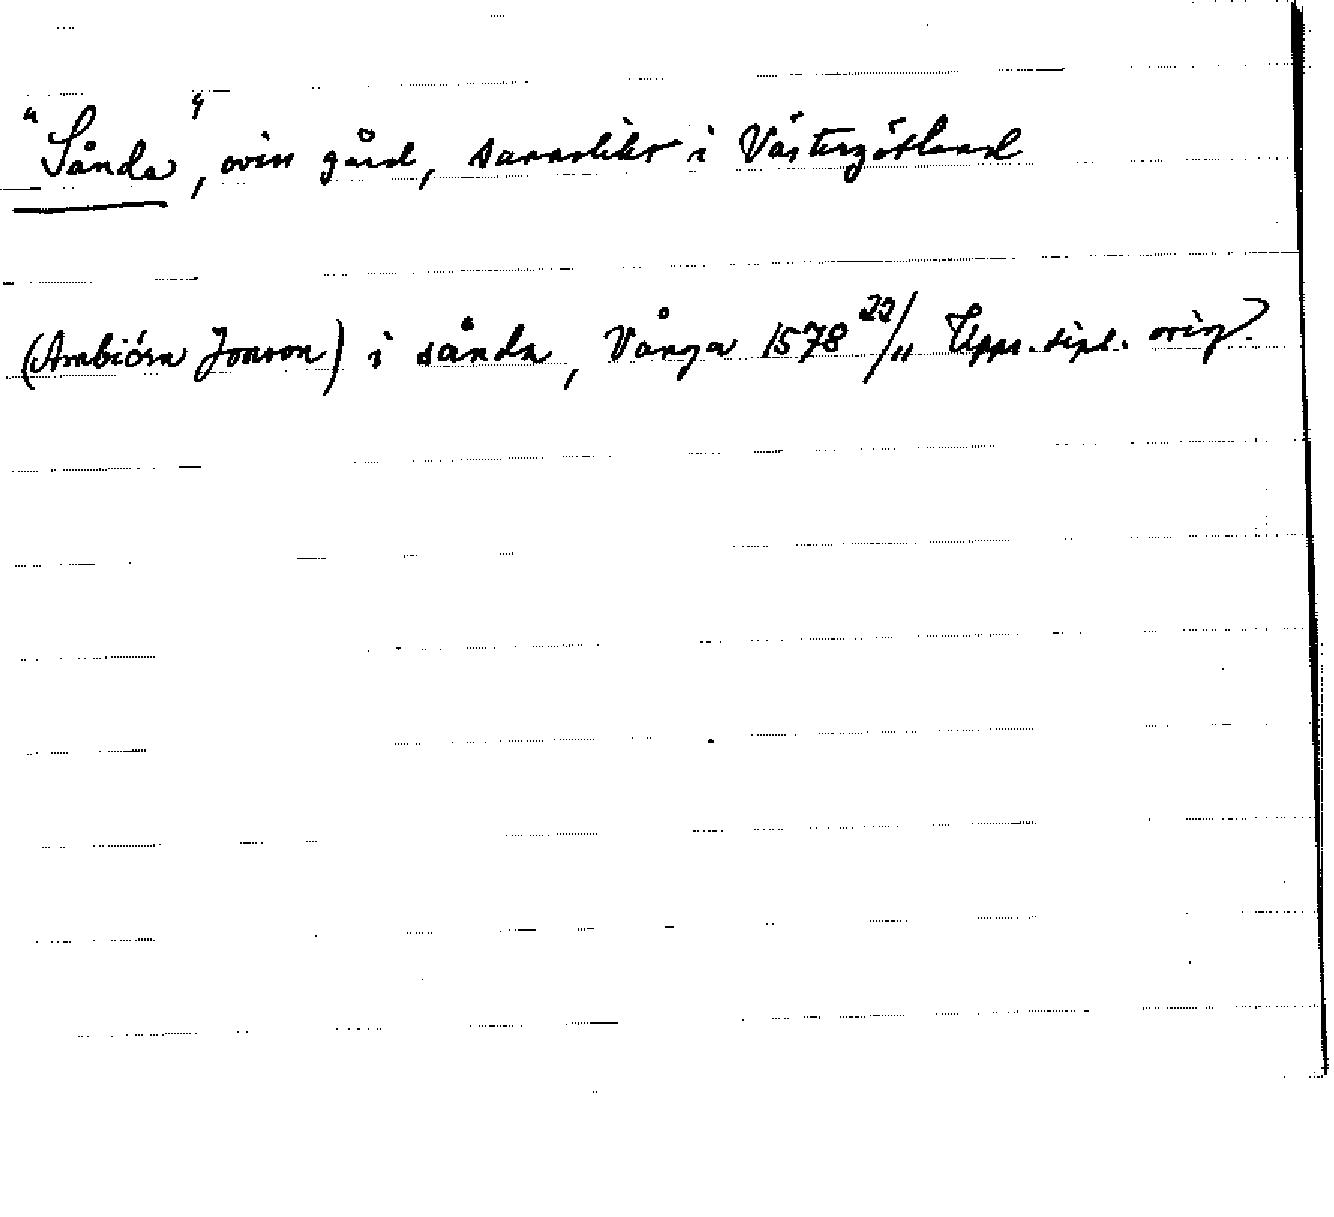 "Sånda", oviss gård, sannolikt i Västergötland
(Ambiörn Jonson) i sånda, Vånga 1578 22/11 Upps. dipl. orig.